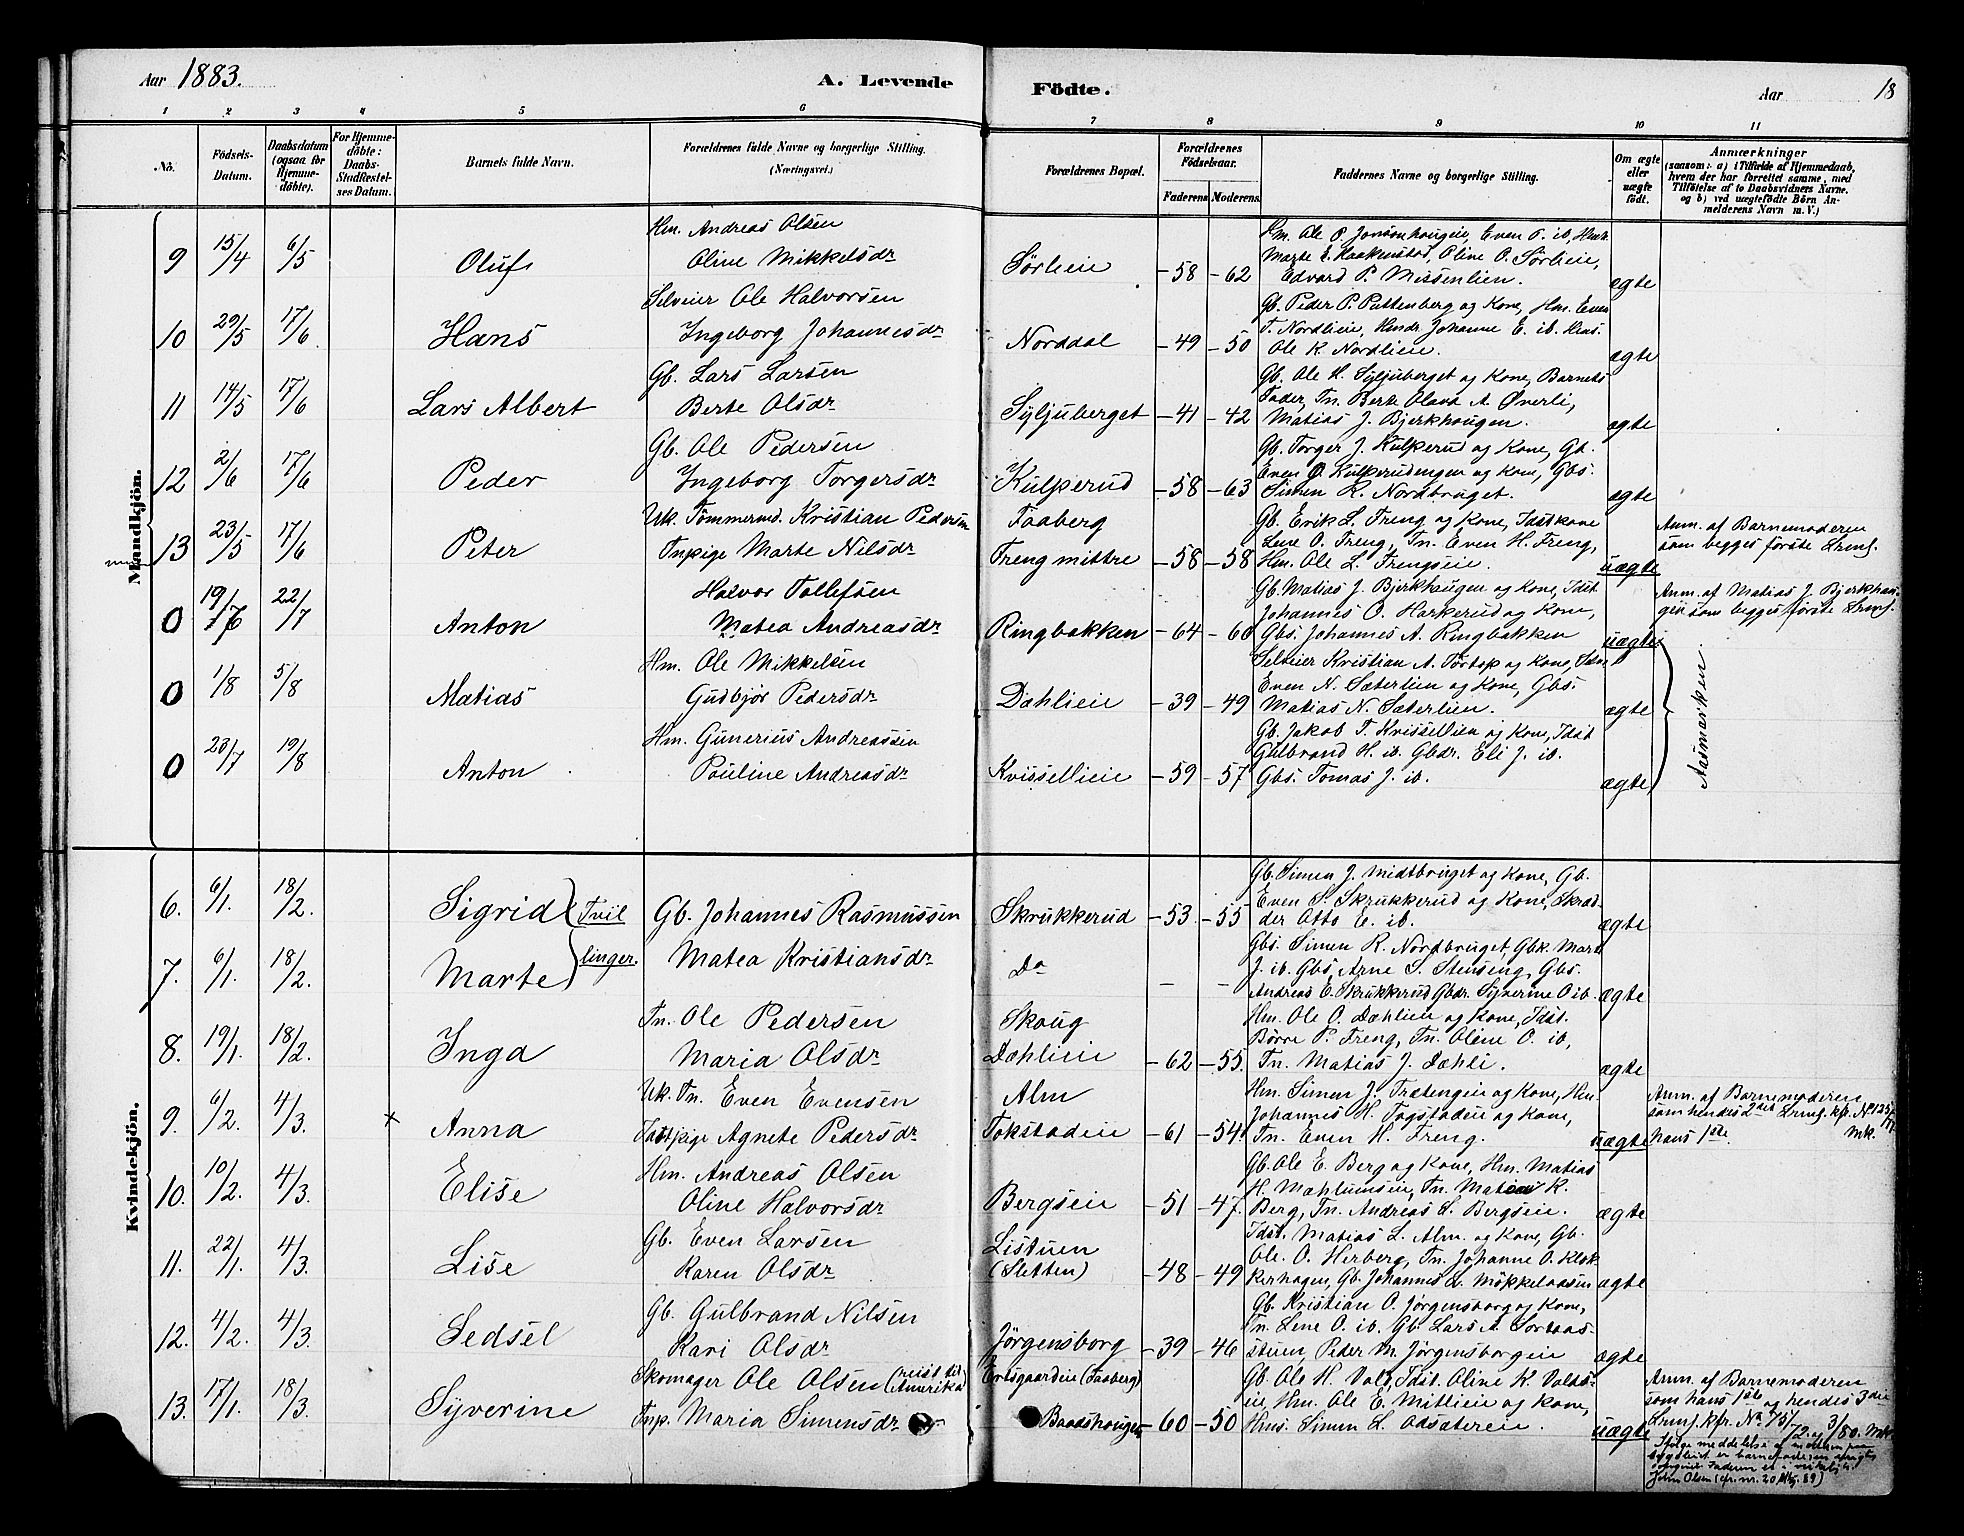 Aar 1883.
A. Levende Födte.
Aar
18
1 2 3 4 5 6 7 8 9 10 11
No.
Födsels-Datum.
Daabsdatum (ogsaa for Hjemmedöbte).
For Hjemmedöbte: Daabs-Stadfæstelses Datum.
Barnets fulde Navn.
Forældrenes fulde Navne og borgerlige Stilling. (Næringsvei.)
Forældrenes Bopæl.
Forældrenes Födselsaar.
Faderens Moderens
Faddernes Navne og borgerlige Stilling.
Om ægte eller uægte födt.
Anmærkninger
(saasom: a) i Tilfælde af Hjemmedaab, hvem der har forrettet samme, med Tilföielse af to Daabsvidners Navne. og b) ved uægtefödte Börn Anmelderens Navn m. V.)
Mandkjön.
9 15/4 6/5 Oluf
Hm. Andreas Olsen
Oline Mikkelsdr
Sørlieie -58 -62
Hm. Ole P. Jonsonhougeie, Even P. ib,
Marte E. Haakenstad, Oline O. Sörlieie,
Edvard P. Missenlien.
ægte
10 29/5 17/6 Hans
Selveier Ole Halvorsen
Ingeborg Johannesdr
Norddal -49 -50
Gb. Peder P. Puttenberg og Kone, Hm. Even
T. Nordlieie, Hmdr Johanne E. ib. Hms.
Ole K. Nordlieie.
ægte
11 14/5 17/6 Lars Albert
Gb. Lars Larsen
Berte Olsdr
Syljuberget -41 -42
Gb. Ole H. Syljuberget og Kone, Barnets
Fader, Tn. Berte Olava A. Øverli,
Matias J. Bjerkhougen.
ægte
12 2/6 17/6 Peder
Gb. Ole Pedersen
Ingeborg Torgersdr
Kulperud -58 -63
Gb. Torger J. Kulperud og Kone, Gb.
Even O. Kulperudengen og Kone, Gbs.
Simen R. Nordbruget.
ægte
13 23/5 17/6 Peter
Uk. Tömmermd. Kristian Pedersen
Tnpige Marte Nilsdr
Faaberg
Freng mittre -58 -58
Gb. Erik L. Freng og Kone, Idstkone
Lene O. Freng, Tn. Even H. Freng,
Hm. Ole L. Frengseie.
uægte
Anm. af Barnemoderen
som begges förste Lrmf.
0 19/6 22/7 Anton
Halvor Tollefsen
Matea Andreasdr
Ringbakken -64 -60
Gb. Matias J. Bjerkhaugen og Kone, Idst
Johannes O. Harkerud og Kone,
Gbs. Johannes A. Ringbakken
uægte
Anm. af Matias J. Bjerkhau-
gen som begges förste Lrmf.
0 1/8 5/8 Matias
Hm. Ole Mikkelsen
Gudbjør Pedersdr
Dæhlieie -39 -49
Selveier Kristian A. Tørtop og Kone,
Even N. Sæterlien og Kone, Gbs.
Matias N. Sæterlien.
ægte
0 23/7 19/8 Anton
Hm. Gunerius Andreassen
Pauline Andreasdr
Kvissellieie -59 -57
Gb. Jakob T. Kvissellien og Kone, Idst
Gulbrand H. ib. Gbdr. Eli J. ib.
Gbs. Tomas J. ib.
ægte
Aasmarken.
Kvindekjön.
6. 6/1. 18/2. Sigrid
Tvil
Gb. Johannes Rasmussen
Skrukkerud -53 -55
Gb. Simen J. Midtbruget og Kone, Gb.
Even S. Skrukkerud og Kone, Skræd-
der Otto E. ib.
ægte
7. 6/1. 18/2. Marte
linger.
Matea Kristiansdr
Do - -
Gbs. Simen R. Nordbruget, Gbk. Marte
J. ib. Gbs. Arne S. Stenseng, Gbs.
Andreas E. Skrukkerud Gbdr. Syverine O ib.
ægte
8. 19/1. 18/2. Inga
Tn. Ole Pedersen
Maria Olsdr
Skoug
Dæhlieie -62 -55.
Hm. Ole O. Dæhlien og Kone, Idst.
Börre P. Freng, Tn. Oline O. ib,
Tn. Matias J. Dæhli.
ægte
9. 6/2. 4/3. x Anna
Uk. Tn. Even Evensen
Tnpige Agnete Pedersdr
Alm
Tokstadeie -61 -54
Hm. Simen J. Trætengeie og Kone, Hm.
Johannes H. Togstadeie og Kone,
Tn. Even H. Freng.
uægte
Anm. af Barnemoderen
som hendes 2det Lrmf. kfr. No 125/77
hans 1ste. mk.
10. 10/2. 4/3. Elise
Hm. Andreas Olsen
Oline Halvorsdr
Bergseie -51 -47.
Gb. Ole E. Berg og Kone, Hm. Matias
H. Mæhlumseie, Tn. K.
Berg, Tn. Andreas L. Bergseie.
ægte
11. 22/1. 4/3. Lise
Gb. Even Larsen
Karen Olsdr
Listuen
(Sletten) -48 -49
Idst. Matias L. Alm. og Kone, Gb.
Ole. O. Herberg, Tn. Johanne O. Klok-
kerhagen, Gb. Johannes A. Mökkelaasen
ægte
12. 4/2. 4/3. Sedsel
Gb. Gulbrand Nilsen
Kari Olsdr
Jörgensborg -39 -46
Gb. Kristian O. Jörgensborg og Kone,
Tn. Lene O. ib. Gb. Lars A.
stuen, Peder M. Jörgensborgeie
ægte
13. 17/1. 18/3. Syverine
Skomager Ole Olsen (reist til Amerika)
Tnp. Maria Simensdr
Evesgaardeie (Faaberg)
Baadshougen -60 -50
Gb. Ole H. Vold, Idst. Oline K. Volds-
eie, Hm. Ole E. Mitlieie og Kone,
Hms. Simen L. Odsætereie.
uægte
Anm. af Barnemoderen
som hans 1ste og hendes 3die
Lrmf. kfr. No 75/72. og 3/80. mk.
Ifölge meddelelse
John Olsen (cfr. nr. 20 89)